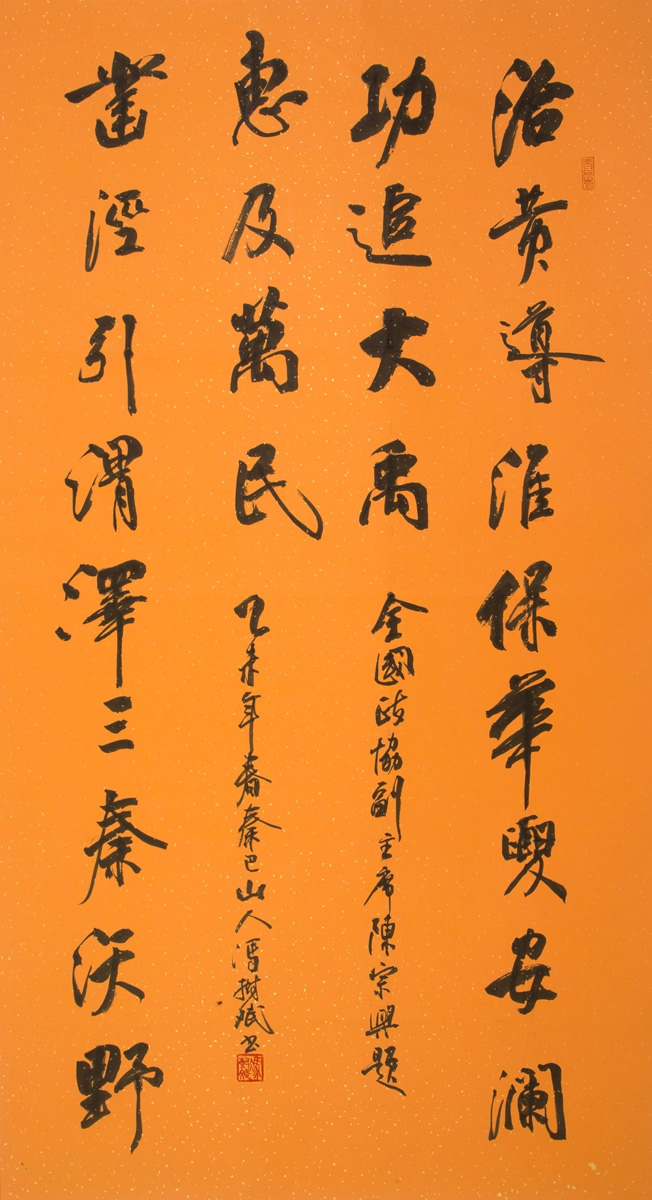 治黄導淮保華夏安澜
功追大禹
全國政協副主席陳宗興題
凿涇引渭澤三秦沃野
惠及萬民
乙未年春秦巴山人馮樹珉书